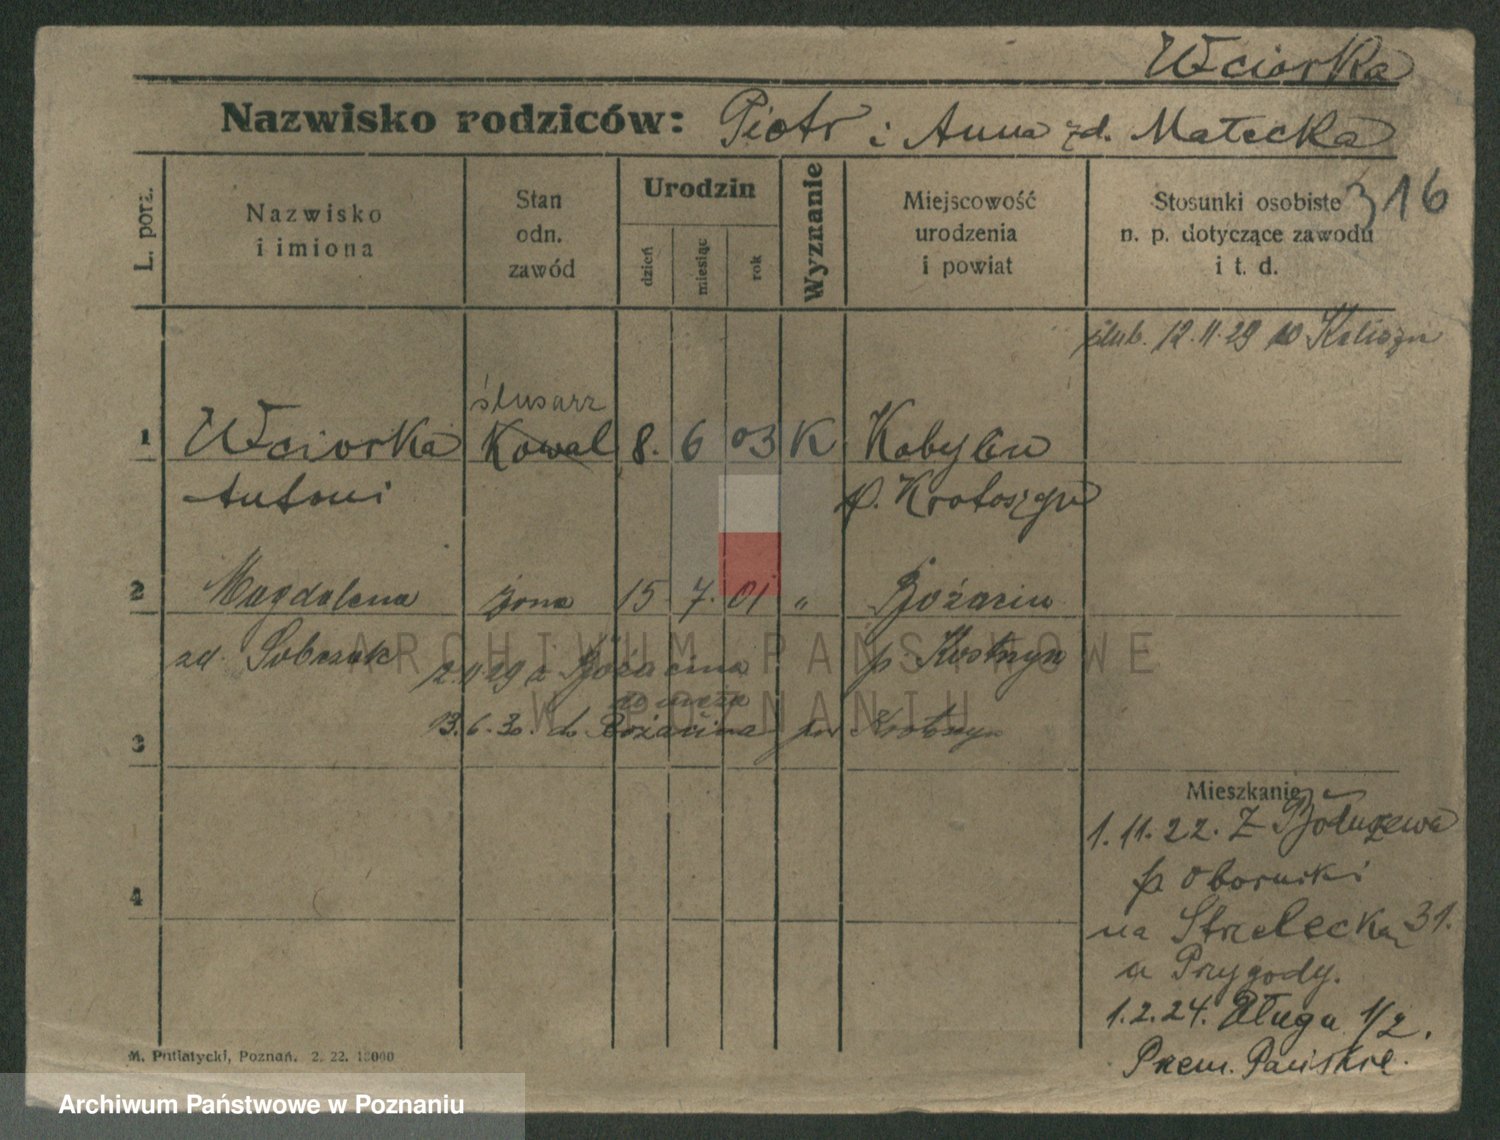 Wciorka
Nazwisko rodziców: Piotr i Anna zd. Małecka
316
L. porz.
Nazwisko i imiona
Stan odn. zawód
Urodzin
dzień
miesiąc
rok
Wyznanie
Miejscowość urodzenia i powiat
Stosunki osobiste n. p. dotyczące zawodu i t. d.
ślub. 12.11.29 w
ślusarz
1 Wciorka Kowal 8. 6 03 K Kobylin
Antoni p. Krotoszyn
2 Magdalena żona 15 7. 01 " Bożacin
zd. Sobczak p.
2.11.29 z Bożacina
13.6.30. do Bożacina pow Krotoszyn
3
Mieszkanie
1.11.22. Z
p Oborniki
4
na Strzelecka 31.
a Przygody.
1.2.24. Długa 1/2.
Przem. Pańskie.
M. Putiatycki, Poznań. 2. 22. 13000
ARCHIWUM PAŃSTWOWE
W POZNANIU
Archiwum Państwowe w Poznaniu